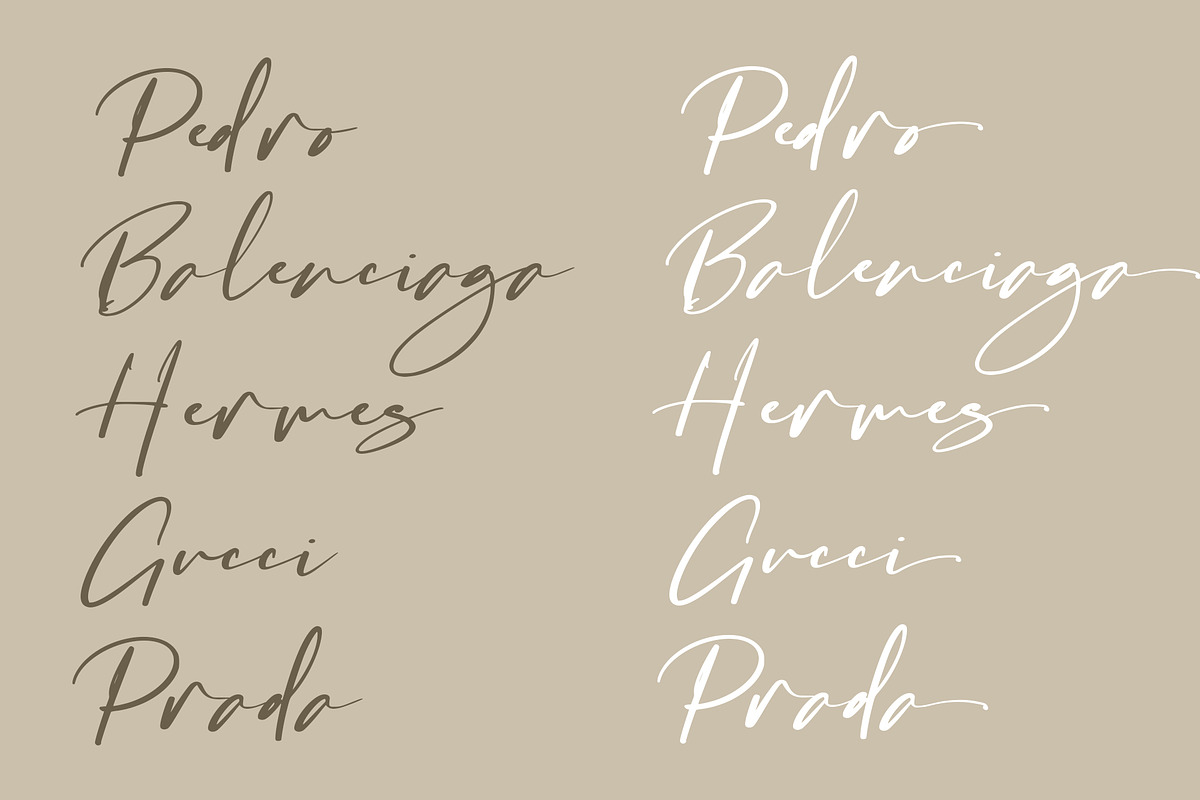 Pedro Pedro
Balenciaga Balenciaga
Hermes Hermes
Gucci Gucci
Prada Prada